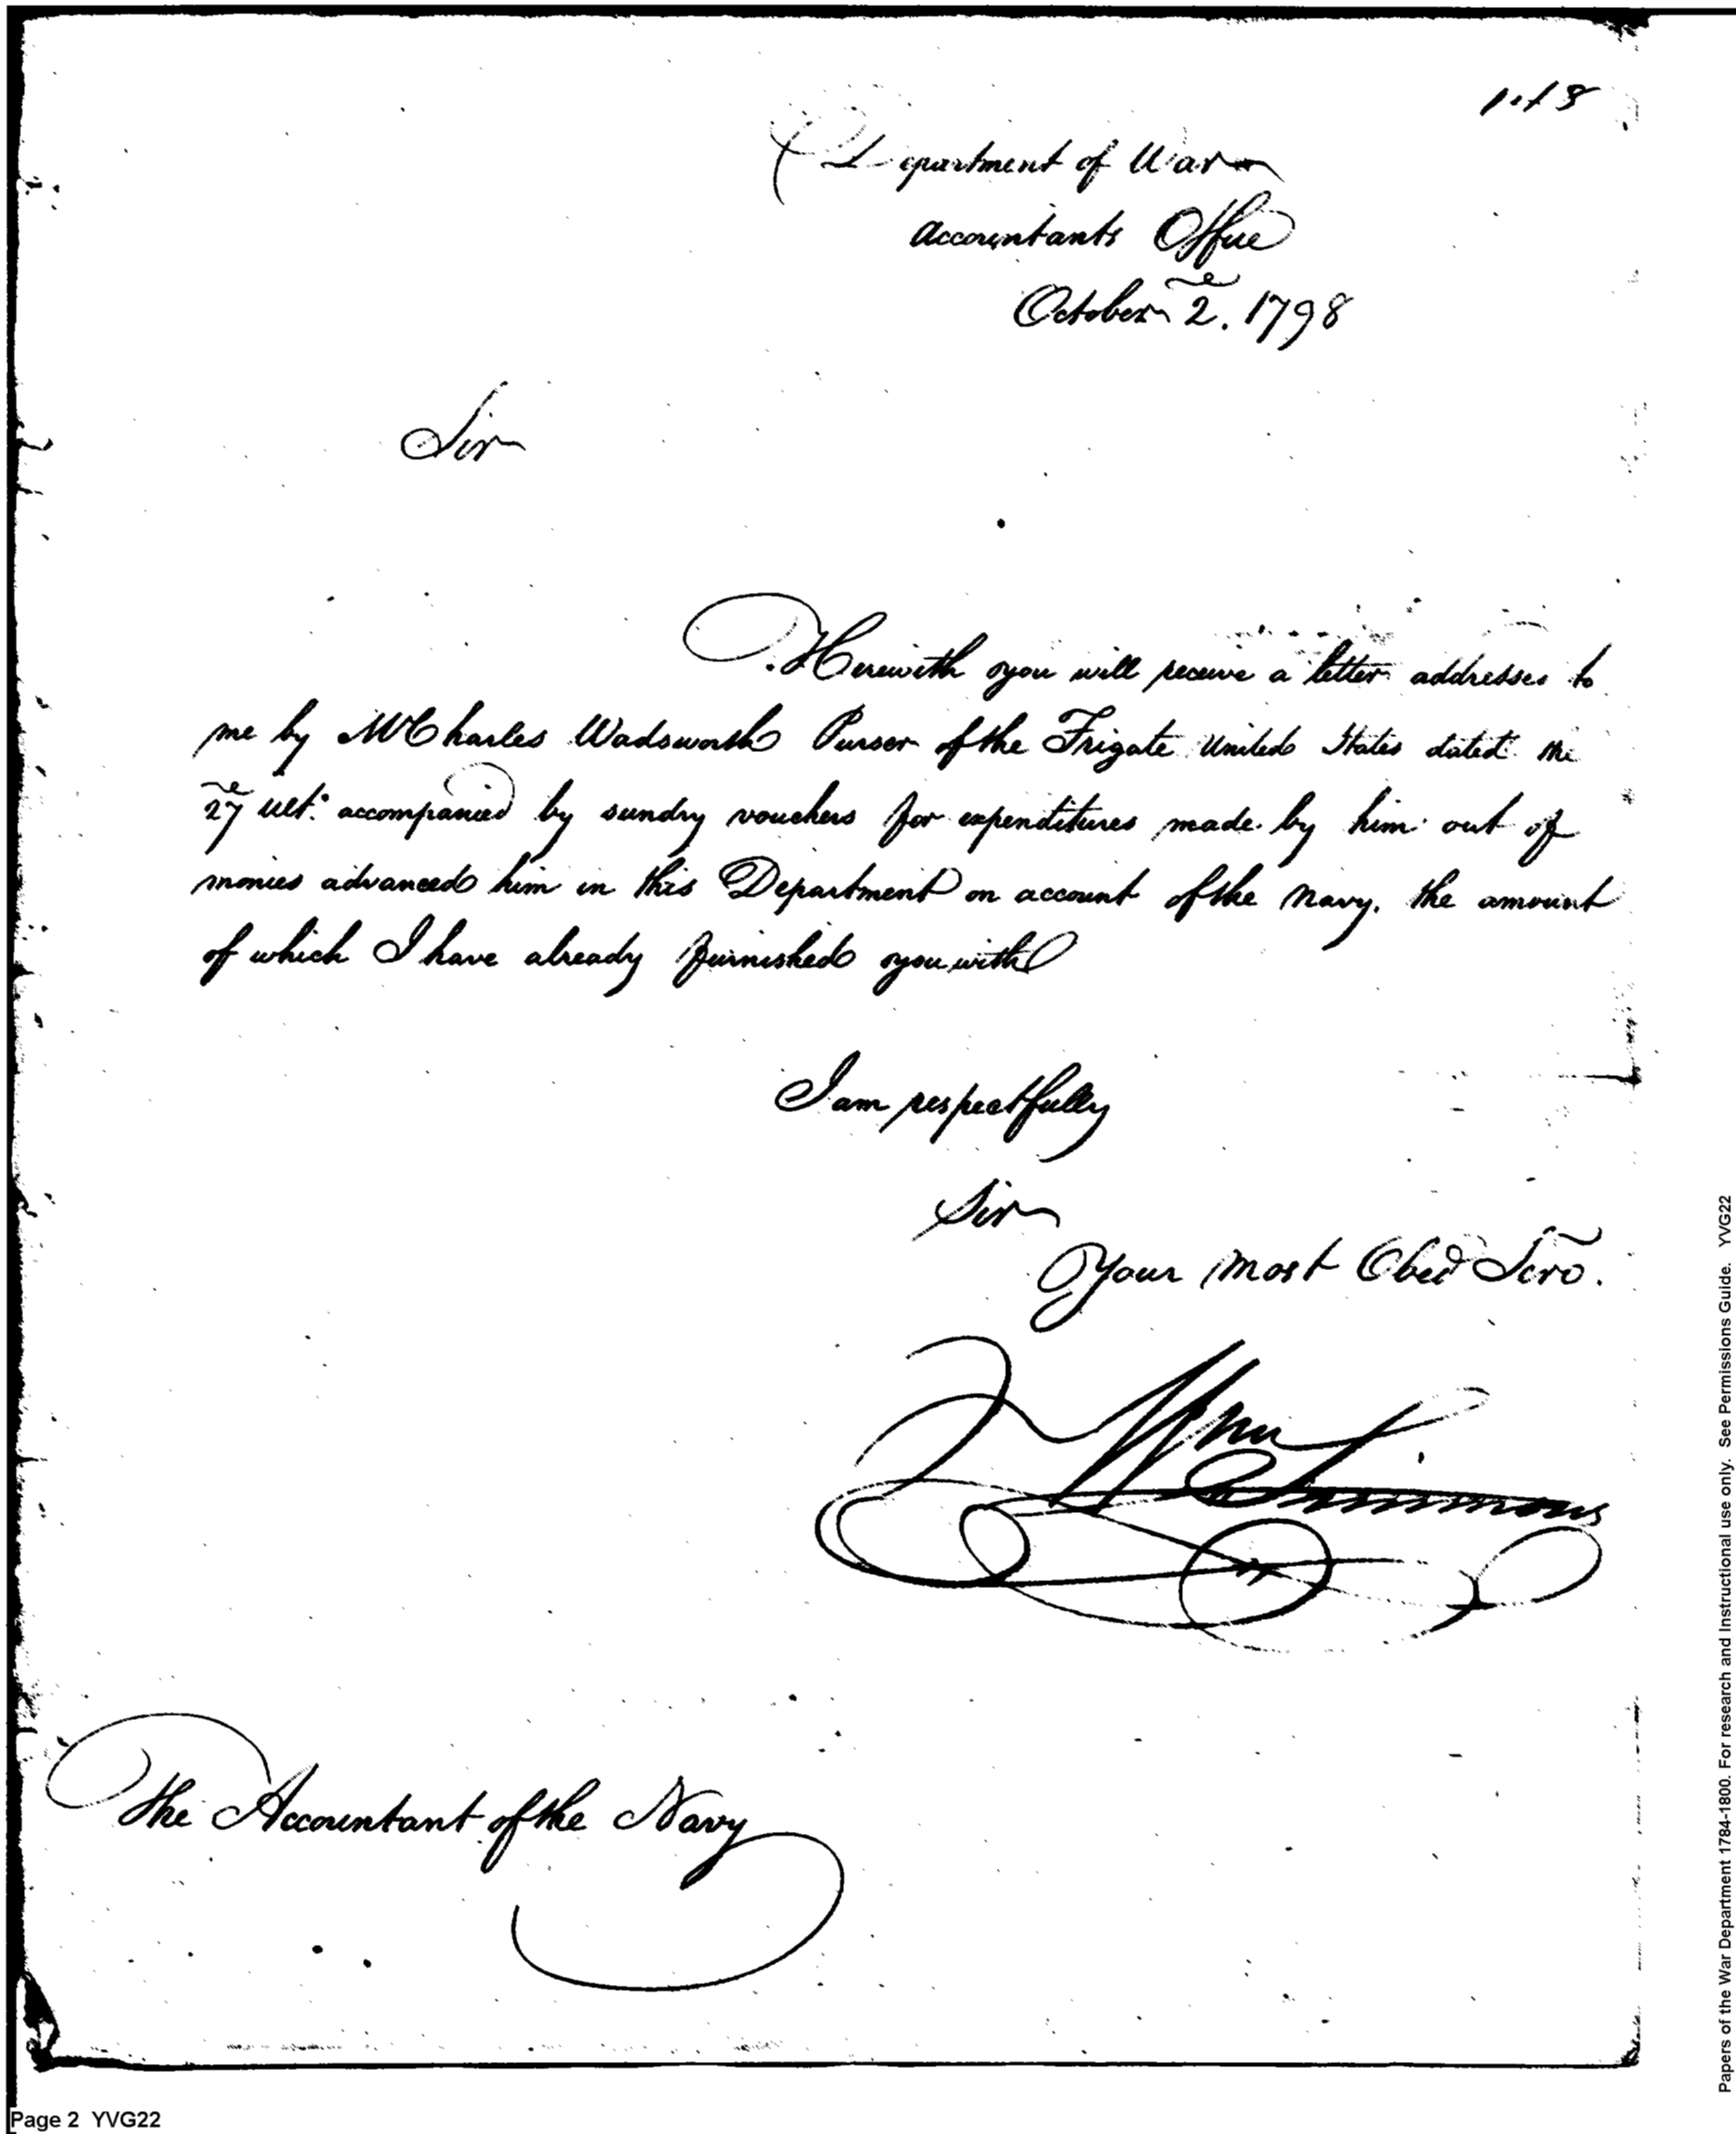 Department of War
Accountants Office
October 2e. 1798
Sir
Herewith you will receive a letter addresses to
me by Mr Charles Wadsworth Purser of the Frigate United States dated the
27e Ult: accompanied by sundry vouchers for expenditures made by him out of
monies advanced him in this Department on account of the Navy. the amount
of which I have already furnished you with
I am respectfully
Sir
Your most Obed Serv.
Wm Simmons
The Accountant of the Navy
Page 2 YVG22
Papers of the War Department 1784-1800. For research and Instructional use only. See Permissions Guide. YVG22